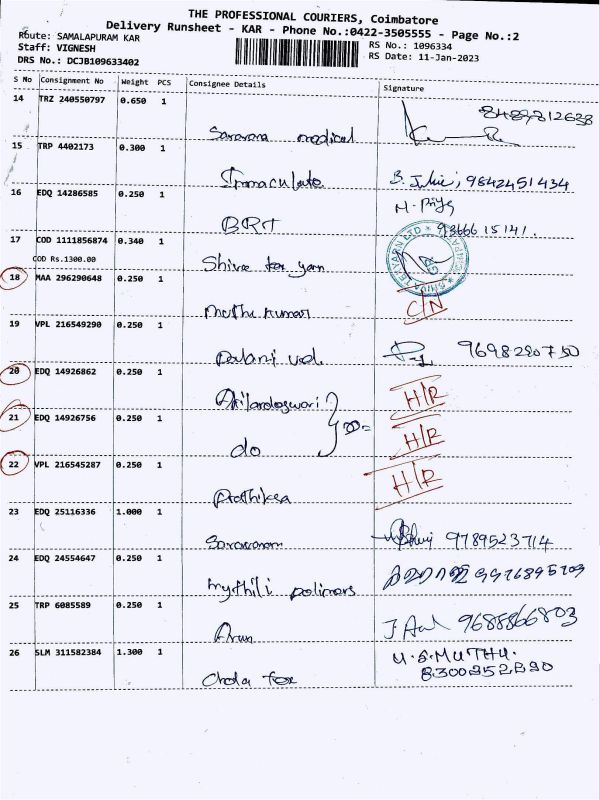 THE PROFESSIONAL COURIERS, Coimbatore
Delivery Runsheet - KAR - Phone No.:0422-3505555 - Page No.:2
Route: SAMALAPURAM KAR
RS No.: 1096334
Staff: VIGNESH
RS Date: 11-Jan-2023
DRS No.: DCJB109633402
S No Consignment No Weight PCS Consignee Details Signature
14 TRZ 240550797 0.650 1
Saravana medical
15 TRP 4402173 0.300 1
Immaculate 9842451434
16 EDQ 14286585 0.250 1 M. Priya
BRT 9366615141.
17 COD 1111856874 0.340 1
COD Rs.1300.00 Shiva tex yarn
18 MAA 296290648 0.250 1 C/N
Muthu kumar
19 VPL 216549290 0.250 1
Palani vel 9698280750
20 EDQ 14926862 0.250 1 H/R
21 EDQ 14926756 0.250 1 H/R
do
22 VPL 216545287 0.250 1 H/R
23 EDQ 25116336 1.000 1
Saravanan 9789523714
24 EDQ 24554647 0.250 1
Mythili polimars
25 TRP 6085589 0.250 1
Arun 9688866803
26 SLM 311582384 1.300 1 M.S.MUTHU.
Chola Tex 8300252890